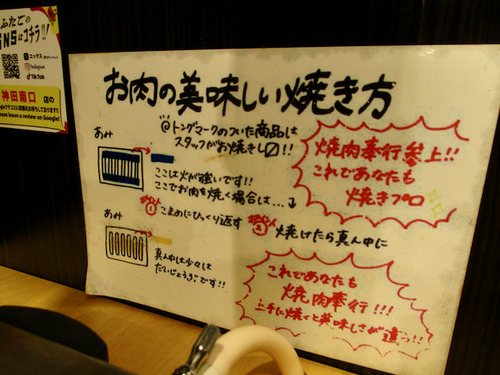 ふたごの
SNSはコチラ!!
エックス
Instagram
TikTok
神田南口 店の
Please leave a review on Google!
お肉の美味しい焼き方
@トングマークのついた商品は
スタッフがお焼きし〼!!
あみ
ここは火が強いです!!
ここでお肉を焼く場合は…↓
ポイント① こまめにひっくり返す
あみ
真ん中は少々は
だいじょうぶです!!
ポイント② 焼けたら真ん中に
焼肉奉行参上!!
これであなたも
焼きプロ
これであなたも
焼肉奉行!!!
上手に焼くと美味しさが違う!!